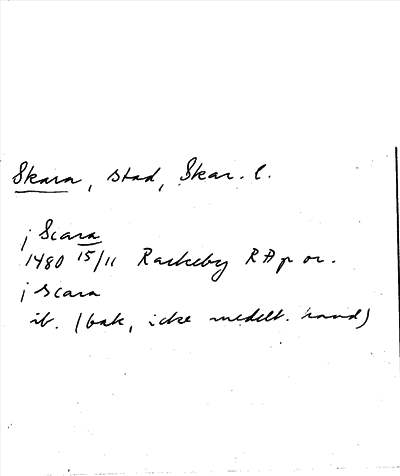 Skara, stad, Skar. l.
j Scara
1480 15/11 Rackeby RA p or.
j scara
ib. (bak, icke medelt. hand)